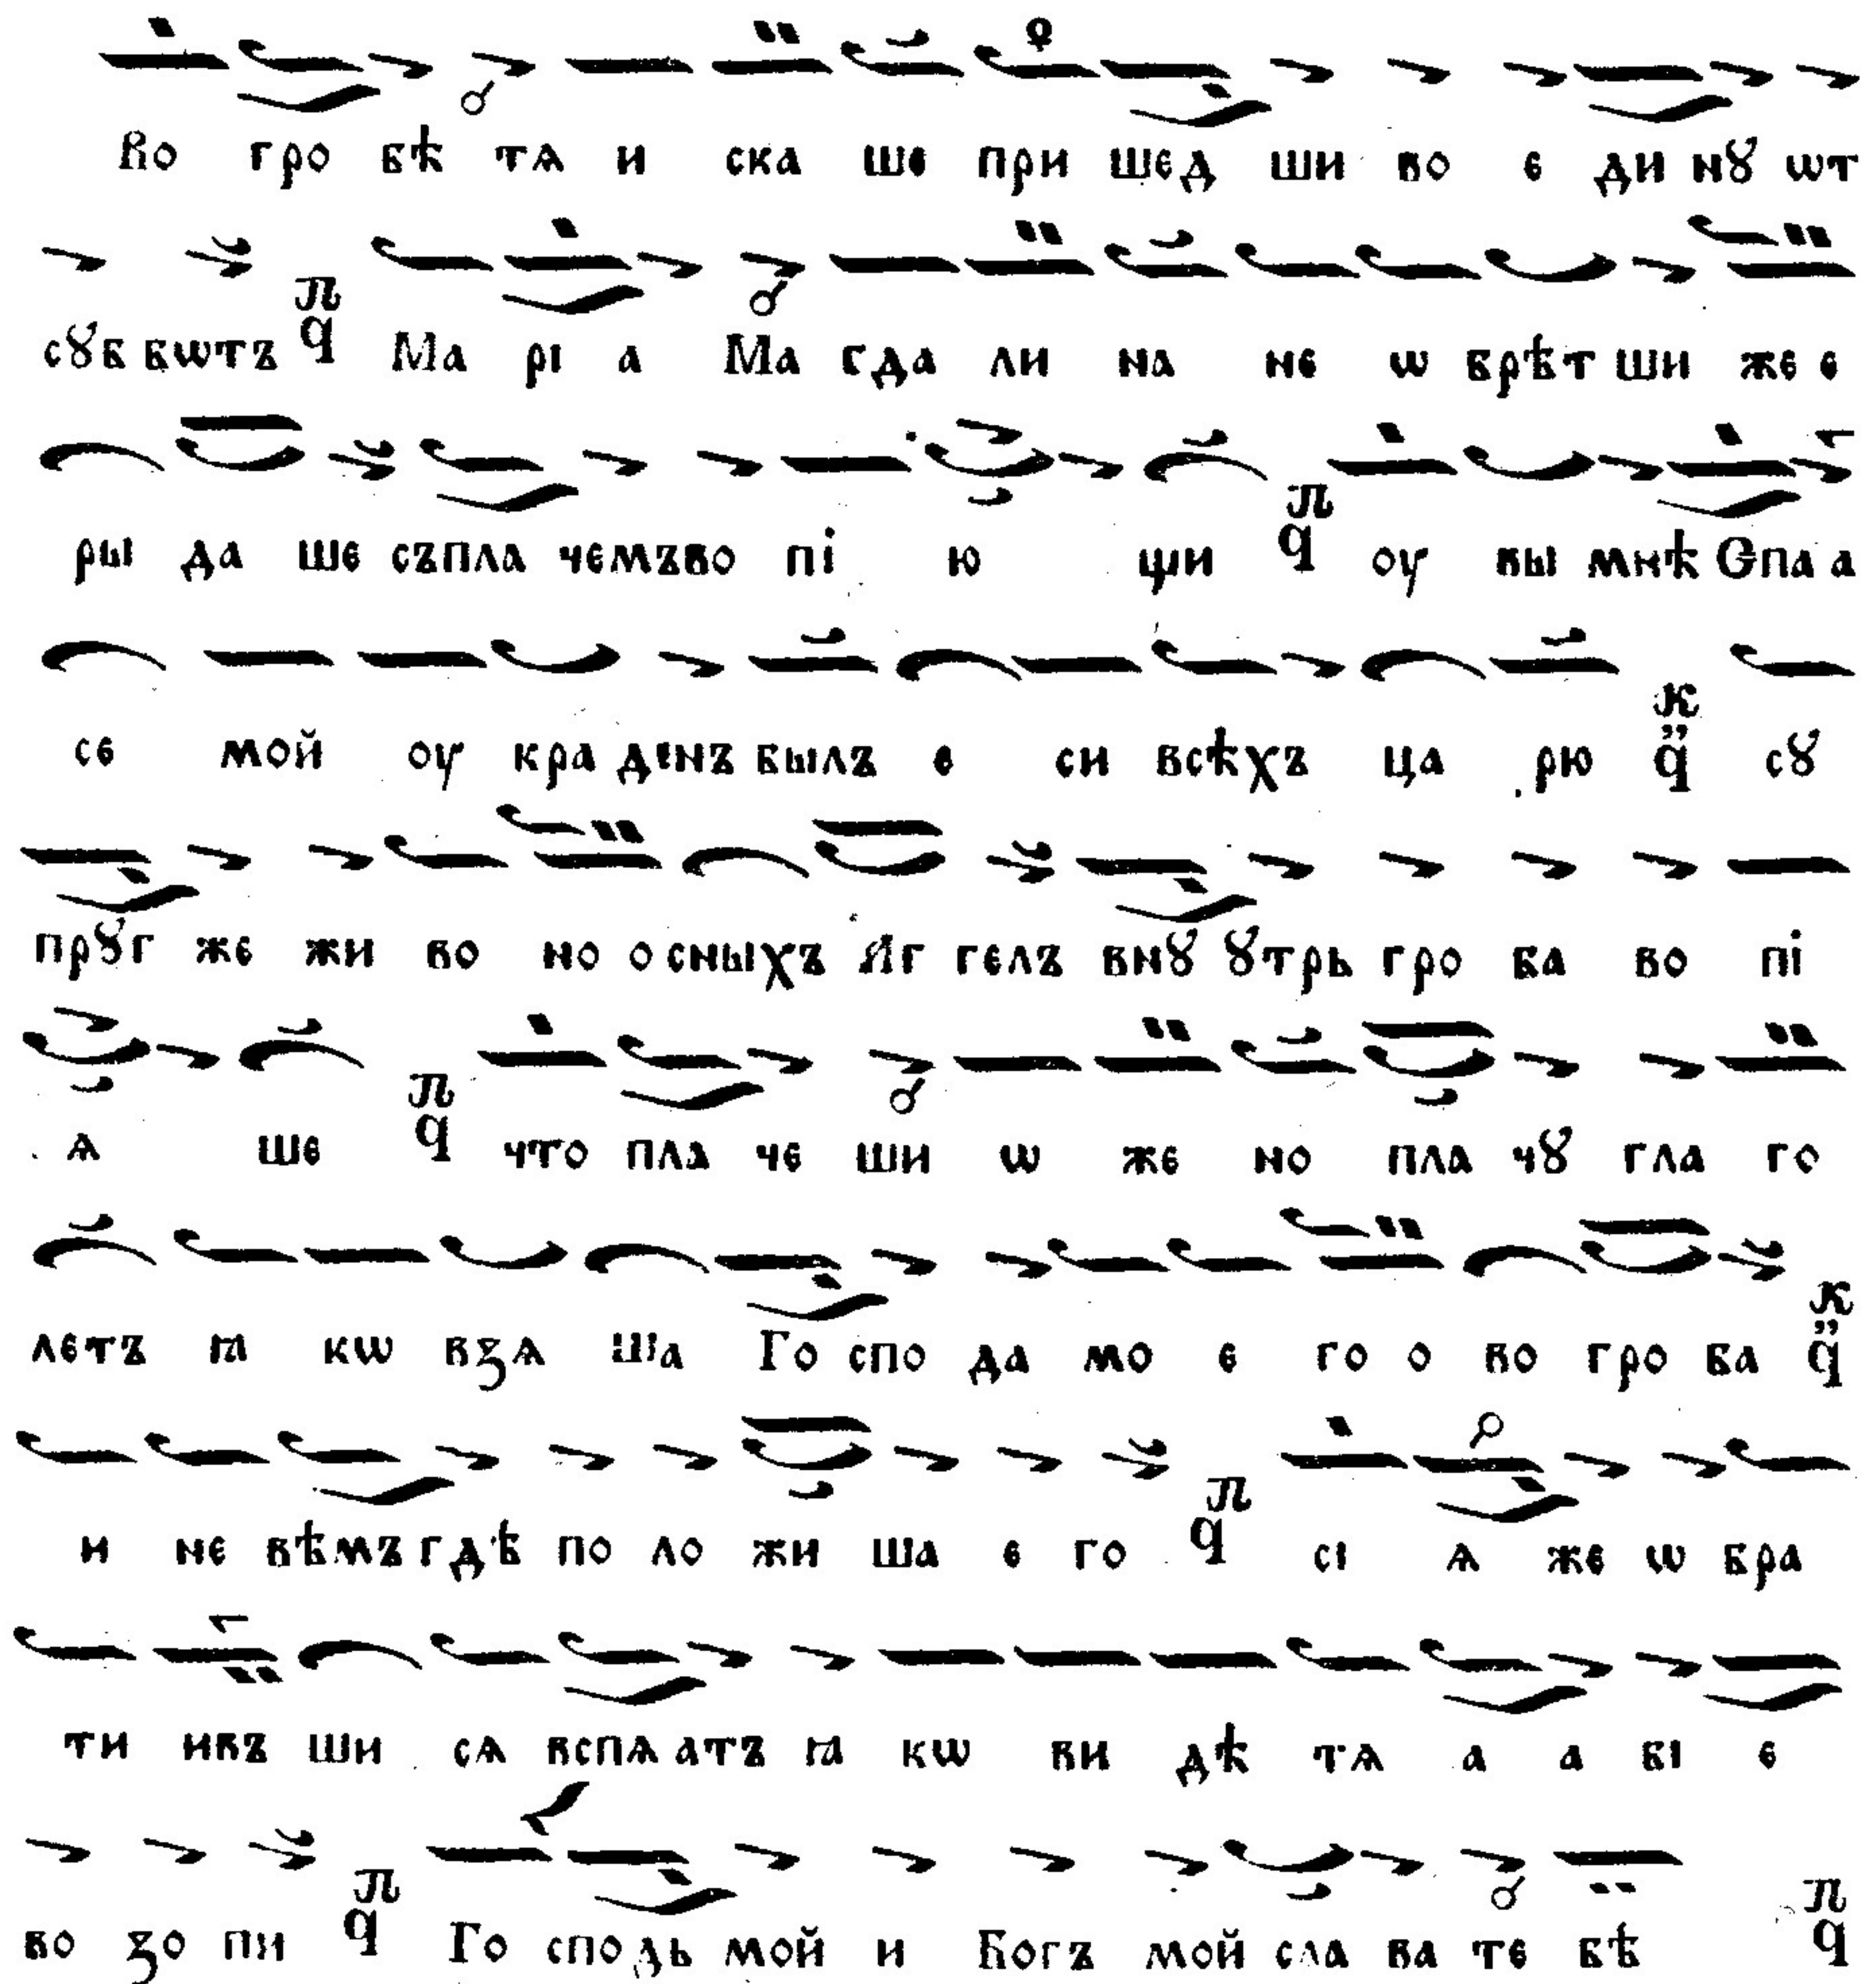 Во гро бѣ тѧ и ска ше при шед ши во е ди нꙋ ѡт
сꙋб бѡтъ п҃ q Ма рі а Ма гда ли на не ѡ брѣт ши же е
ры да ше съпла чемъво пі ю щи п q оу вы мнѣ Спа а
се мой оу кра денъ былъ е си всѣхъ ца рю к q сꙋ
прꙋг же жи во но о сныхъ Аг гелъ внꙋ ꙋтрь гро ба во пі
ѧ ше п q что пла че ши ѡ же но пла чꙋ гла го
летъ ꙗ кѡ взѧ ша Го спо да мо е го о во гро ба к q
и не вѣмъ гдѣ по ло жи ша е го п q сі ѧ же ѡ бра
ти ивъ ши сѧ вспѧ атъ ꙗ кѡ ви дѣ тѧ а а бі е
во зо пи п q Го сподь мой и Богъ мой сла ва те бѣ п q